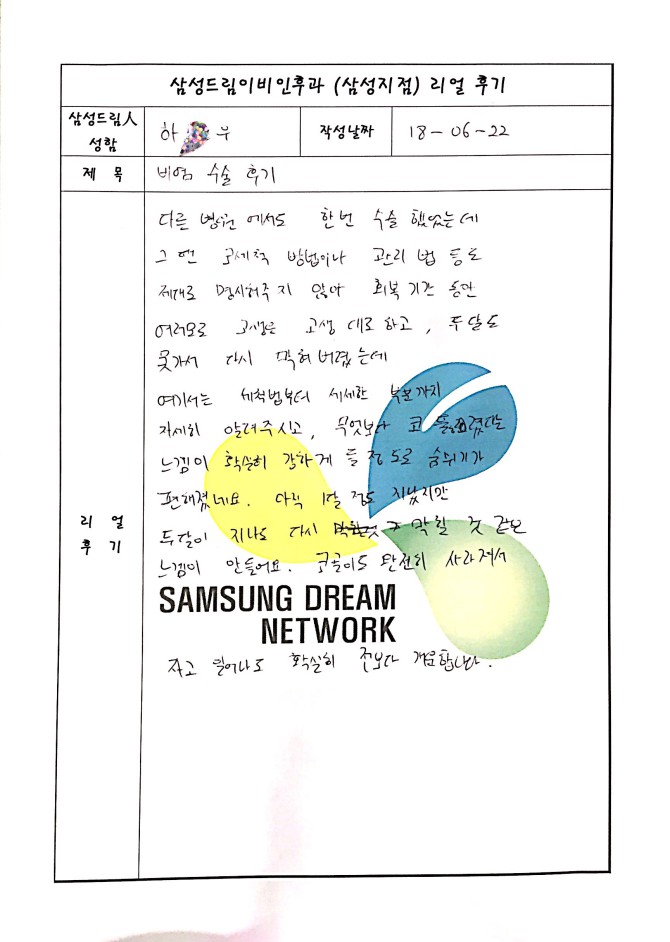 삼성드림이비인후과 (삼성지점) 리얼 후기
삼성드림人 성함
하 우
작성날짜
18-06-22
제 목
비염 수술 후기
리 얼 후 기
다른 병원 에서도 한번 수술 했었는데
그 땐 코세척 방법이나 관리 법 등도
제대로 명시해주지 않아 회복 기간 동안
여러모로 고생은 고생 대로 하고, 두달도
못가서 다시 막혀버렸는데
여기서는 세척법부터 세세한 부분까지
자세히 알려주시고, 무엇보다 코 뚫렸다는
느낌이 확실히 강하게 들 정도로 숨쉬기가
편해졌네요. 아직 1달 정도 지났지만
두달이 지나도 다시 막힐 것 같은
느낌이 안들어요. 코골이도 완전히 사라져서
SAMSUNG DREAM
NETWORK
자고 일어나도 확실히 전보다 개운합니다.